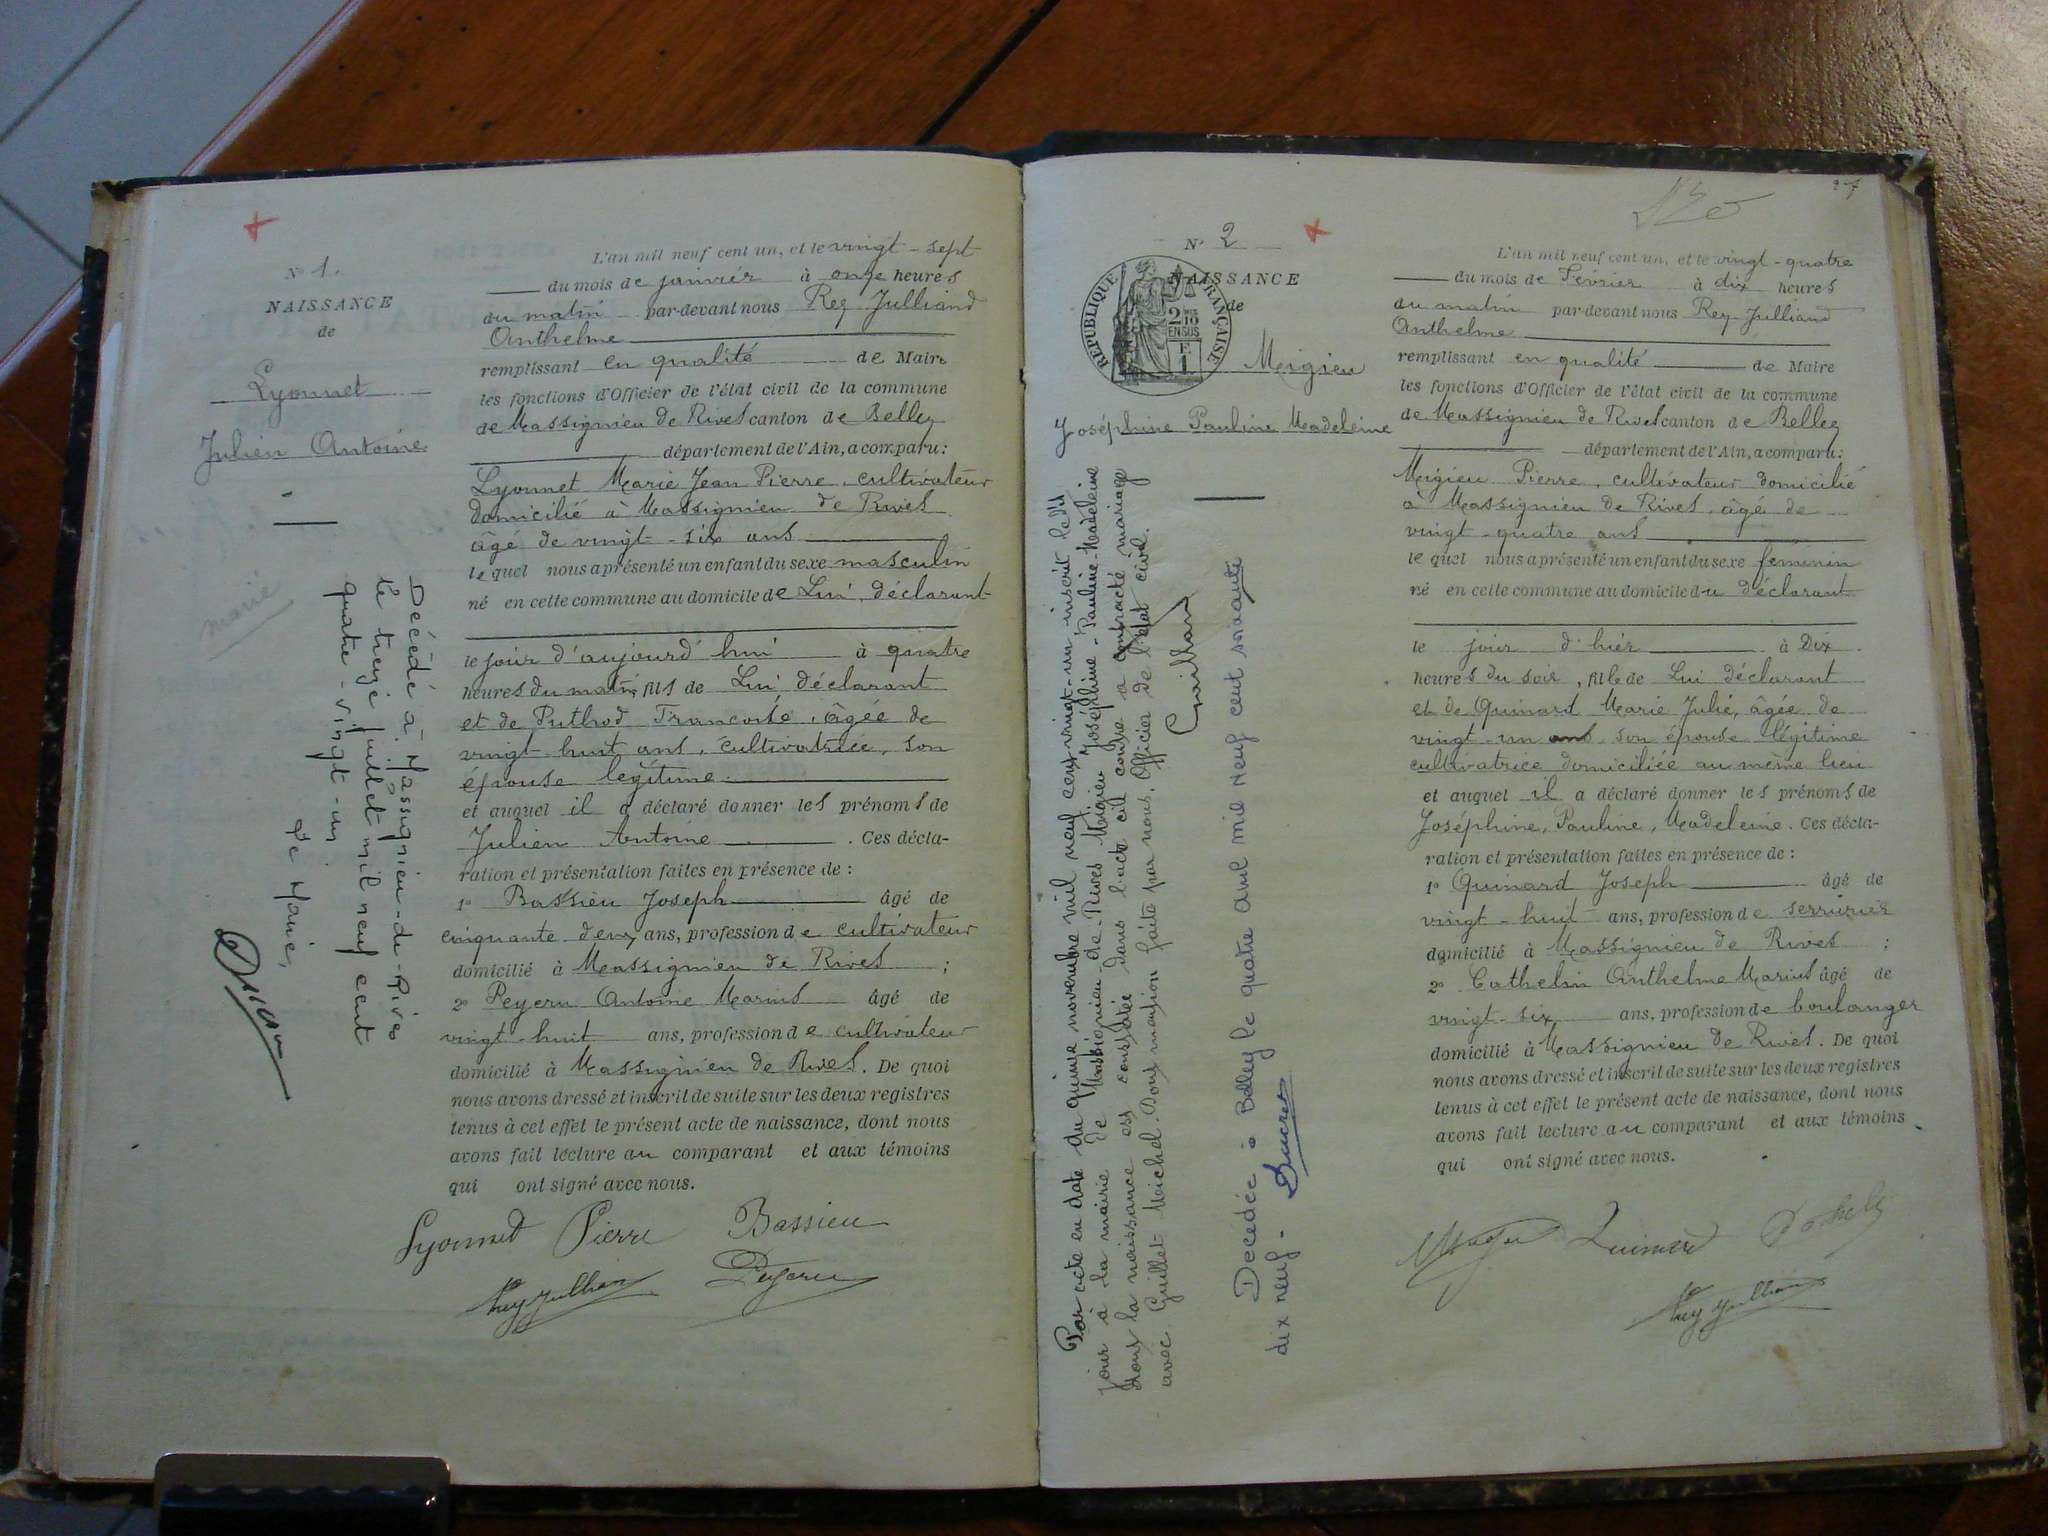 N° 1.
NAISSANCE
de
Lyonnet
Julien Antoine
marié
Décédé à Massignieu-de-Rives
le treize juillet mil neuf cent
quatre-vingt-un
Le Maire,
L'an mil neuf cent un, et le vingt-sept
du mois de janvier à onze heures
du matin par-devant nous Rey Julliand
Anthelme
remplissant en qualité de Maire
les fonctions d'Officier de l'état civil de la commune
de Massignieu de Rives canton de Belley
département de l'Ain, a comparu:
Lyonnet Marie Jean Pierre, cultivateur
domicilié à Massignieu de Rives
âgé de vingt-six ans
lequel nous a présenté un enfant du sexe masculin
né en cette commune au domicile de Lui, déclarant
le jour d'aujourd'hui à quatre
heures du matin, fils de Lui déclarant
et de Françoise, âgée de
vingt huit ans, cultivatrice, son
épouse légitime
et auquel il a déclaré donner les prénoms de
Julien Antoine. Ces décla-
ration et présentation faites en présence de:
1° Bassieu Joseph âgé de
cinquante deux ans, profession de cultivateur
domicilié à Massignieu de Rives;
2° Peyern Antoine Marius âgé de
vingt-huit ans, profession de cultivateur
domicilié à Massignieu de Rives. De quoi
nous avons dressé et inscrit de suite sur les deux registres
tenus à cet effet le présent acte de naissance, dont nous
avons fait lecture au comparant et aux témoins
qui ont signé avec nous.
Lyonnet Pierre Bassieu
Rey Jullian Peyern
N° 2
NAISSANCE
de
RÉPUBLIQUE FRANÇAISE
2 10
EN SUS
F
1
Migieu
Joséphine Pauline Madeleine
Par acte en date du quinze novembre mil neuf cent vingt-un inscrit le dit
jour à la mairie de Massignieu-de-Rives Migieu Joséphine-Pauline-Madeleine
dont la naissance est constatée dans l'acte ci contre a contracté mariage
avec Guillet Michel. Dont mention faite par nous, Officier de l'état civil.
Decedée à Belley le quatre avril mil neuf cent soixante
dix neuf.
Ducret
27
L'an mil neuf cent un, et le vingt-quatre
du mois de Février à dix heures
du matin par-devant nous Rey Julliand
Anthelme
remplissant en qualité de Maire
les fonctions d'Officier de l'état civil de la commune
de Massignieu de Rives canton de Belley
département de l'Ain, a comparu:
Migieu Pierre, cultivateur domicilié
à Massignieu de Rives, âgé de
vingt-quatre ans
lequel nous a présenté un enfant du sexe feminin
né en cette commune au domicile du déclarant
le jour d'hier à Dix
heures du soir, fille de Lui déclarant
et de Quinard Marie Julie, âgée de
vingt-un ans, son épouse légitime
cultivatrice domiciliée au même lieu
et auquel il a déclaré donner les prénoms de
Joséphine, Pauline, Madeleine. Ces décla-
ration et présentation faites en présence de:
1° Quinard Joseph âgé de
vingt-huit ans, profession de serrurier
domicilié à Massignieu de Rives;
2° Cathelin Anthelme Marius âgé de
vingt-six ans, profession de boulanger
domicilié à Massignieu de Rives. De quoi
nous avons dressé et inscrit de suite sur les deux registres
tenus à cet effet le présent acte de naissance, dont nous
avons fait lecture au comparant et aux témoins
qui ont signé avec nous.
Quinard
Rey Jullian